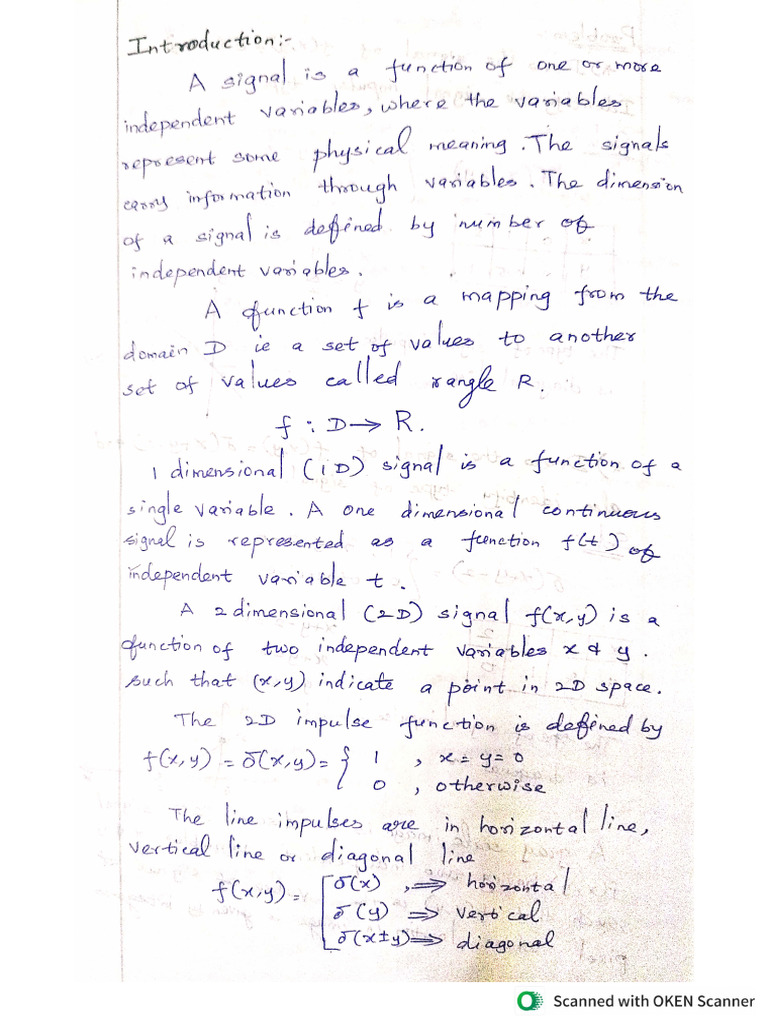 Introduction:-
A signal is a function of one or more
independent variables, where the variables
represent some physical meaning. The signals
carry information through variables. The dimension
of a signal is defined by number of
independent variables.
A function f is a mapping from the
domain D ie a set of values to another
set of values called rangle R.
f : D → R.
1 dimensional (1D) signal is a function of a
single variable. A one dimensional continuous
signal is represented as a function f(t) of
independent variable t.
A 2 dimensional (2D) signal f(x,y) is a
function of two independent variables x & y.
such that (x,y) indicate a point in 2D space.
The 2D impulse function is defined by
f(x,y) = δ(x,y) = { 1 , x = y = 0
0 , otherwise
The line impulses are in horizontal line,
vertical line or diagonal line
f(x,y) = [ δ(x) , ⇒ horizontal
δ(y) ⇒ vertical
δ(x±y) ⇒ diagonal
Scanned with OKEN Scanner